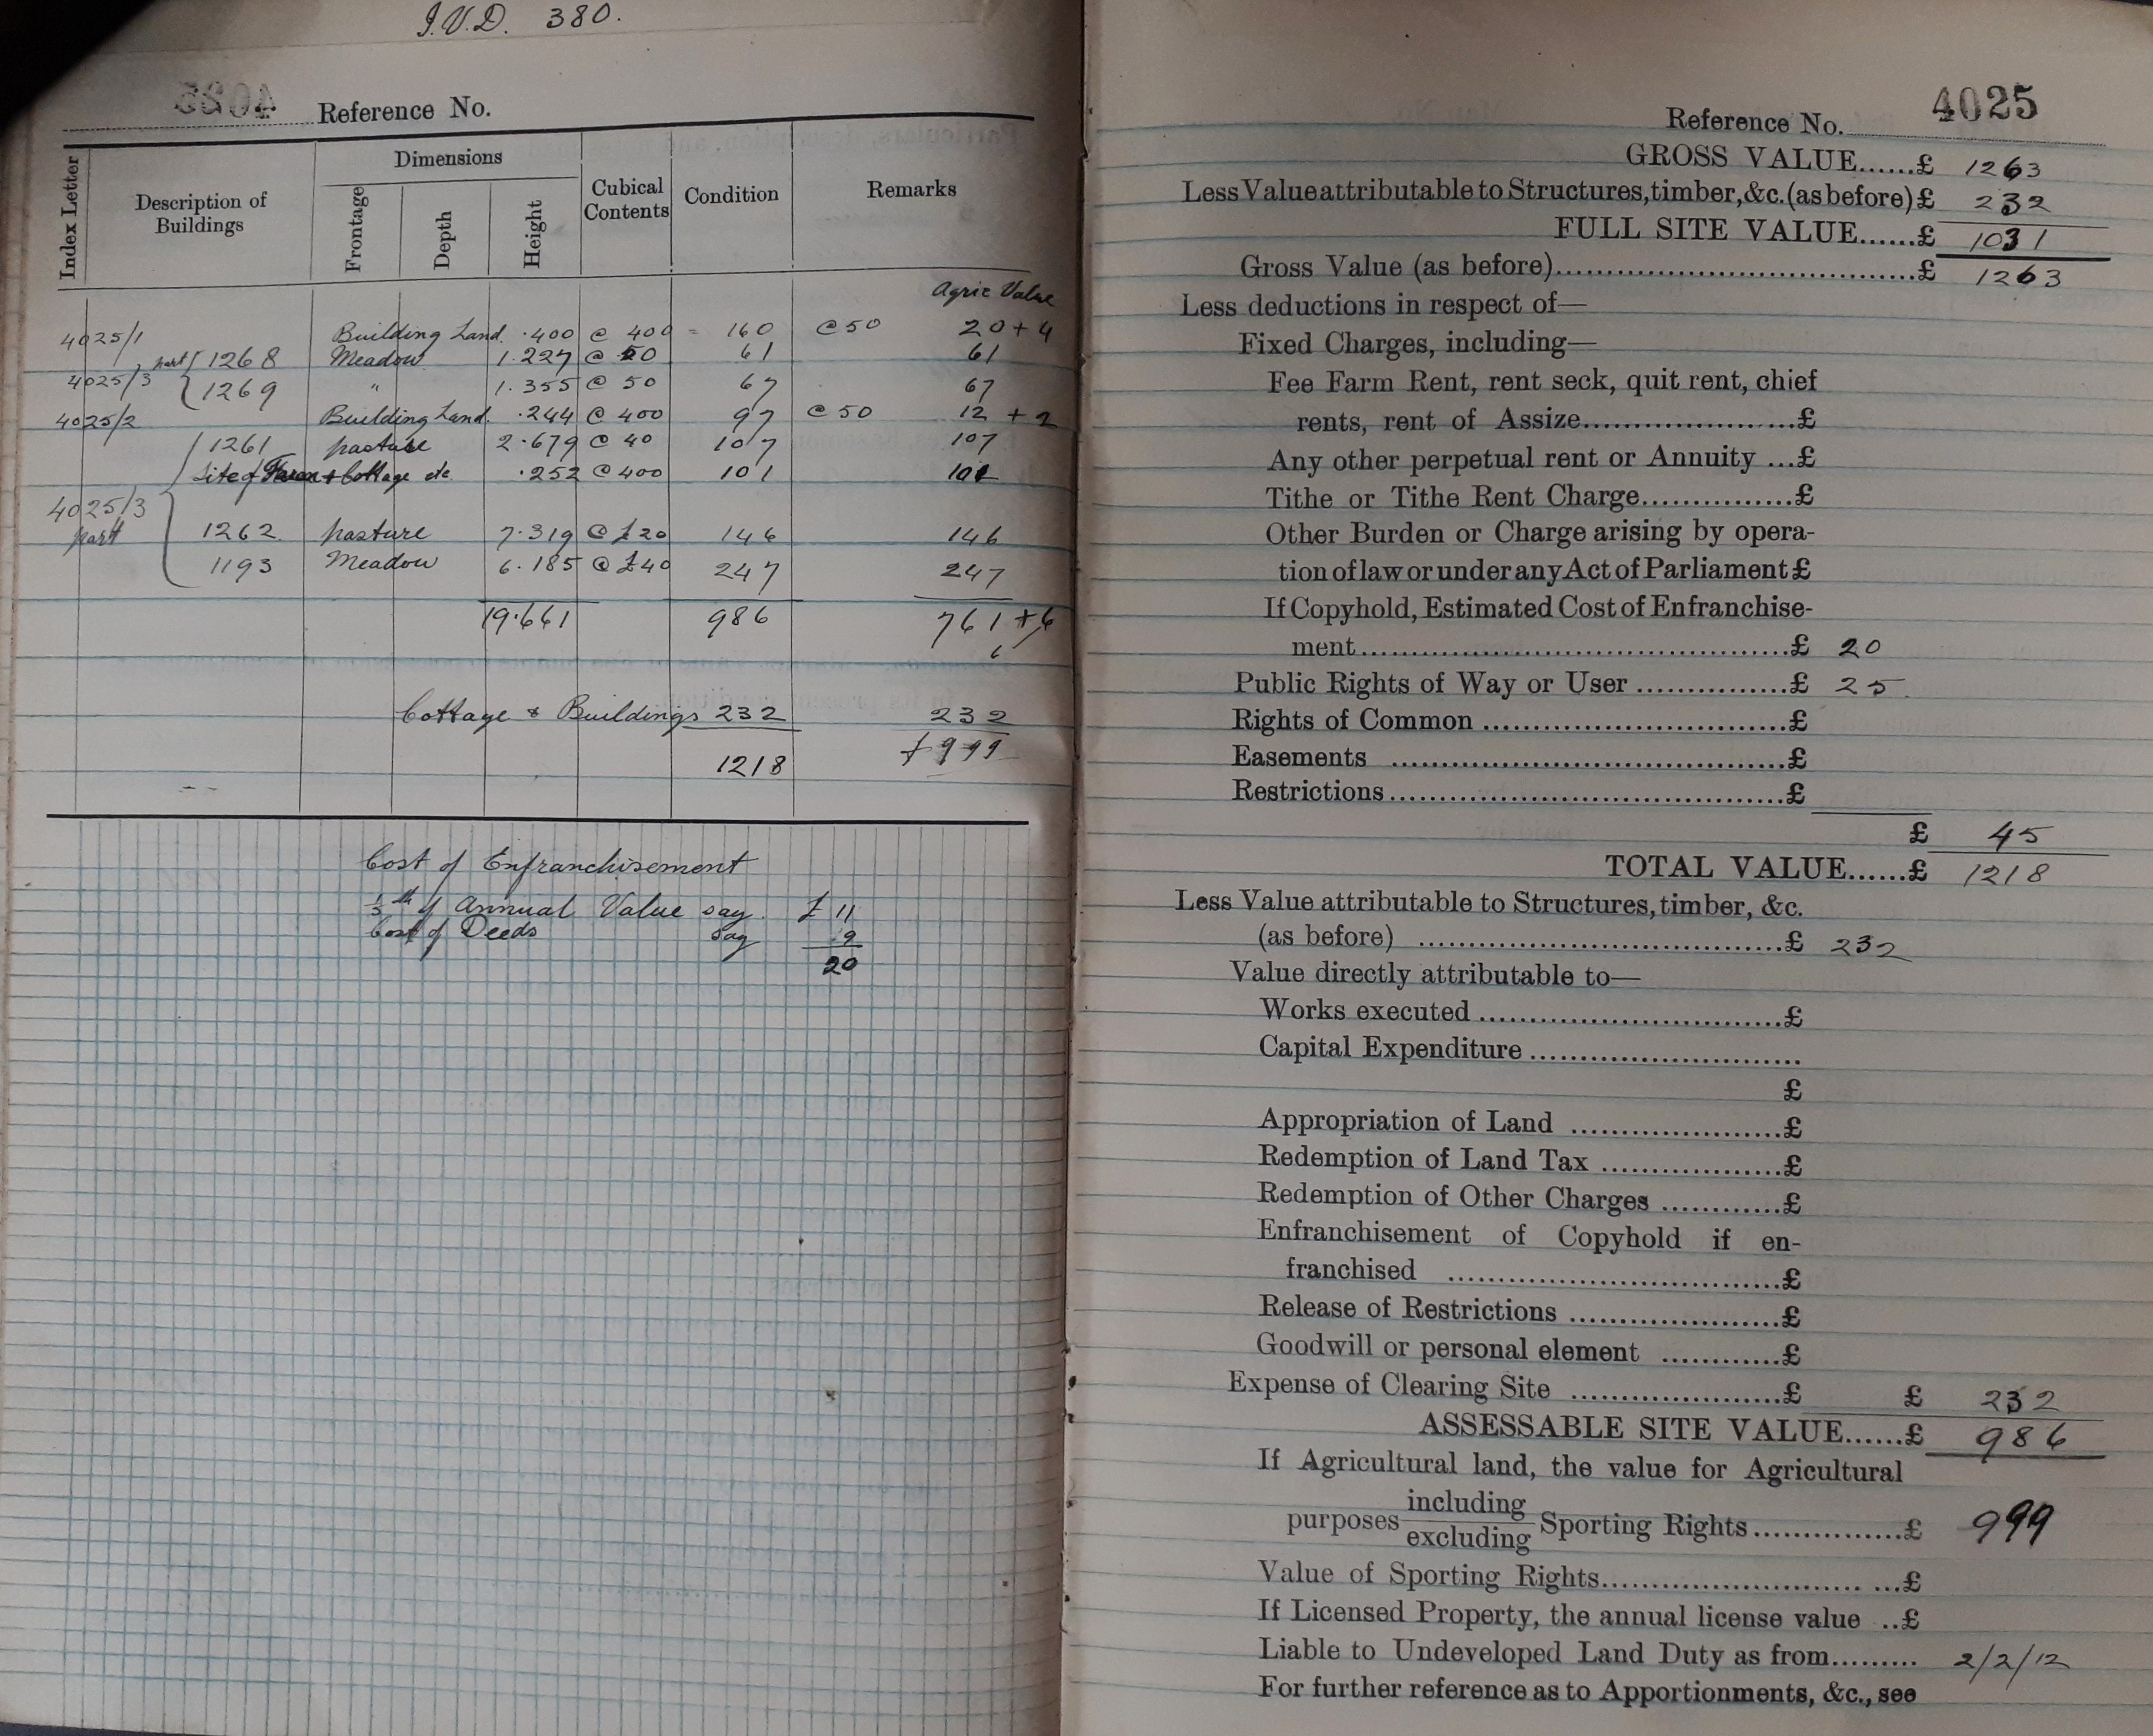 I.V.D. 380.
4025 Reference No.
Index Letter
Description of Buildings
Dimensions
Frontage
Depth
Height
Cubical Contents
Condition
Remarks
Agric Value
4025/1 Building Land. ·400 @ 400 = 160 @ 50 20 + 4
part 1268 Meadow 1.227 @ 50 61 61
4025/3 1269 " 1.355 @ 50 67 67
4025/2 Building Land. ·244 @ 400 97 @ 50 12 + 2
1261 pasture 2·679 @ 40 107 107
Site of Farm & Cottage etc ·252 @ 400 101 101
4025/3
part 1262 pasture 7·319 @ £20 146 146
1193 Meadow 6.185 @ £40 247 247
19·661 986 761 + 6
6
Cottage & Buildings 232 232
1218 £999
Cost of Enfranchisement
1/5th of Annual Value say. £ 11
Cost of Deeds say 9
20
Reference No. 4025
GROSS VALUE......£ 1263
Less Value attributable to Structures, timber, &c. (as before) £ 232
FULL SITE VALUE......£ 1031
Gross Value (as before)......£ 1263
Less deductions in respect of—
Fixed Charges, including—
Fee Farm Rent, rent seck, quit rent, chief
rents, rent of Assize......£
Any other perpetual rent or Annuity ...£
Tithe or Tithe Rent Charge......£
Other Burden or Charge arising by opera-
tion of law or under any Act of Parliament £
If Copyhold, Estimated Cost of Enfranchise-
ment......£ 20
Public Rights of Way or User ......£ 25
Rights of Common ......£
Easements ......£
Restrictions......£
£ 45
TOTAL VALUE......£ 1218
Less Value attributable to Structures, timber, &c.
(as before) ......£ 232
Value directly attributable to—
Works executed ......£
Capital Expenditure ......
£
Appropriation of Land ......£
Redemption of Land Tax ......£
Redemption of Other Charges ......£
Enfranchisement of Copyhold if en-
franchised ......£
Release of Restrictions ......£
Goodwill or personal element ......£
Expense of Clearing Site ......£ £ 232
ASSESSABLE SITE VALUE......£ 986
If Agricultural land, the value for Agricultural
purposes including
excluding Sporting Rights......£ 999
Value of Sporting Rights...... ...£
If Licensed Property, the annual license value ..£
Liable to Undeveloped Land Duty as from......... 2/2/12
For further reference as to Apportionments, &c., see